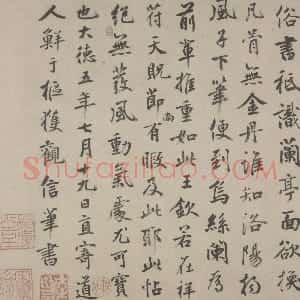 俗書秖識蘭亭面欲換
凡骨無金丹誰知洛陽楊
風子下筆便到烏絲闌為
前輩推重如此王欽若在祥
符天貺節尚有暇及此耶此帖
絕無發風動氣處尤可寶
也大德五年七月十九日直寄道
人鮮于樞獲觀信筆書
Shufaziliao.com